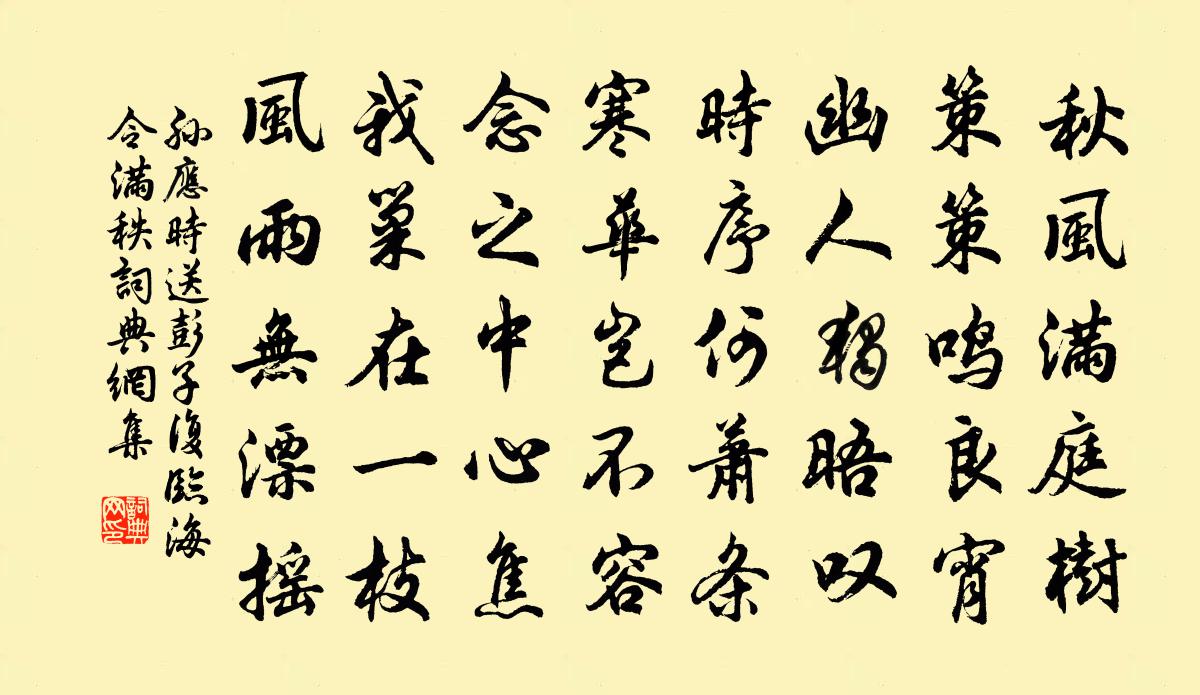 秋風满庭樹
策策鸣良宵
幽人獨晤叹
時序何蕭条
寒華岂不容
念之中心焦
我巢在一枝
風雨無漂摇
孙應時送彭子復臨海
令满秩詞典網集
詞典网印